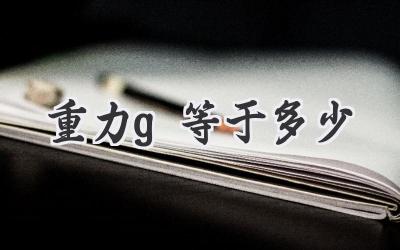 重力g 等于多少